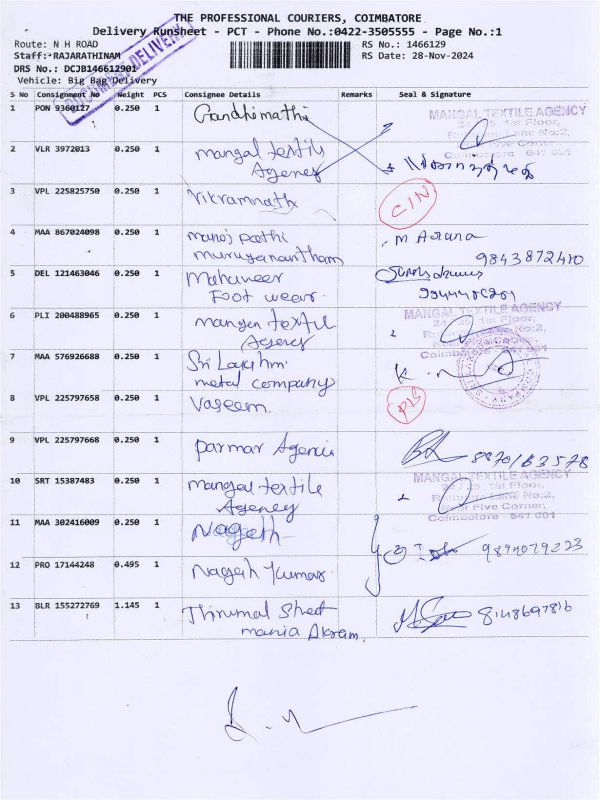 THE PROFESSIONAL COURIERS, COIMBATORE
Delivery Runsheet - PCT - Phone No.:0422-3505555 - Page No.:1
Route: N H ROAD
RS No.: 1466129
Staff: RAJARATHINAM
RS Date: 28-Nov-2024
DRS No.: DCJB146612901
Vehicle: Big Bag Delivery
DOCUMENT DELIVERY
S No Consignment No Weight PCS Consignee Details Remarks Seal & Signature
1 PON 9360127 0.250 1 Gandhimathi
MANGAL TEXTILE AGENCY
1st Floor,
Coimbatore - 641 001
2 VLR 3972013 0.250 1 mangal textile
Agency
3 VPL 225825750 0.250 1 Vikramnath CIN
4 MAA 867024098 0.250 1 manoj pathi M Aruna
muruganantham 9843872410
5 DEL 121463046 0.250 1 Mahaveer
Foot wear
6 PLI 200488965 0.250 1 mangen textil
Agency
MANGAL TEXTILE AGENCY
1st Floor,
Coimbatore - 641 001
7 MAA 576926688 0.250 1 Sri Lakshmi K. n
metal company
8 VPL 225797658 0.250 1 Vaseem
9 VPL 225797668 0.250 1 parmar Agencies 8870163578
10 SRT 15387483 0.250 1 mangal textile
Agency
MANGAL TEXTILE AGENCY
24/25 1st Floor,
Rathnam Lane No:2,
Near Five Corner,
Coimbatore - 641 001
11 MAA 302416009 0.250 1 Nagesh
12 PRO 17144248 0.495 1 Nagesh Kumar
13 BLR 155272769 1.145 1 Thirumal Street 8148697816
mania Akram.